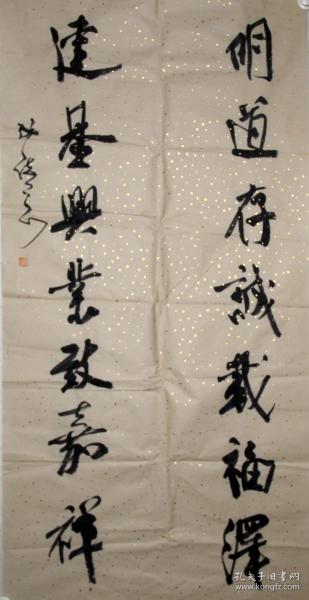 明道存誠載福澤
建基興業致嘉祥
孔夫子旧书网
www.kongfz.com